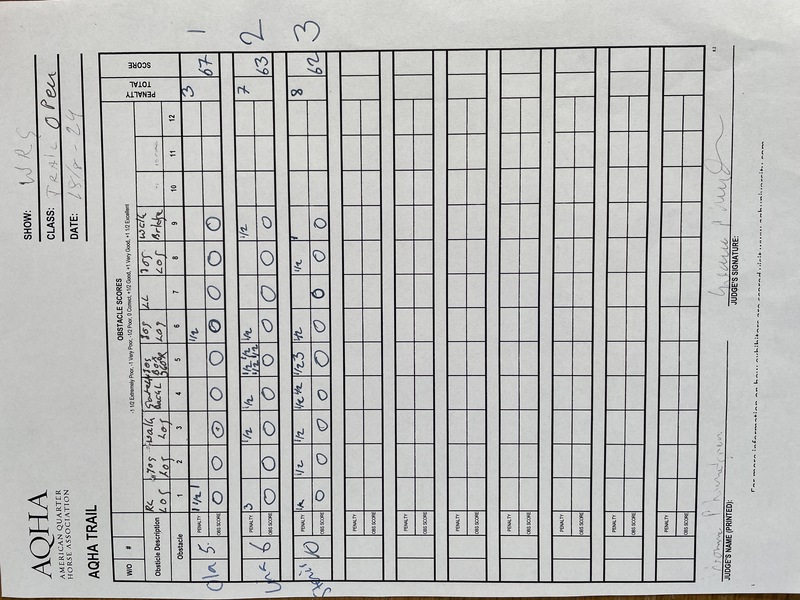 AQHA
AMERICAN QUARTER
HORSE ASSOCIATION
AQHA TRAIL
SHOW: WRS
CLASS: TRAIL OPEN
DATE:
OBSTACLE SCORES
-1 1/2 Extremely Poor, -1 Very Poor, -1/2 Poor, 0 Correct, +1/2 Good, +1 Very Good, +1 1/2 Excellent
W/O #
Obsticle Description RL LOG JOG LOG WALK LOG Back L JOG Box 360R JOG LOG LL JOG LOG Walk Bridge
Obstacle 1 2 3 4 5 6 7 8 9 10 11 12 PENALTY TOTAL SCORE
5 PENALTY 1 1/2 1 1/2 3 1
OBS SCORE 0 0 0 0 0 0 0 0 67
6 PENALTY 3 1/2 1/2 1/2 1/2 1/2 1/2 1/2 1/2 7 2
OBS SCORE 0 0 0 0 0 0 0 0 0 63
10 PENALTY 1/2 1/2 1/2 1/2 1/2 3 1/2 1/2 1 8 3
OBS SCORE 0 0 0 0 0 0 0 0 0 62
PENALTY
OBS SCORE
PENALTY
OBS SCORE
PENALTY
OBS SCORE
PENALTY
OBS SCORE
PENALTY
OBS SCORE
PENALTY
OBS SCORE
PENALTY
OBS SCORE
JUDGE'S NAME (PRINTED): JUDGE'S SIGNATURE: